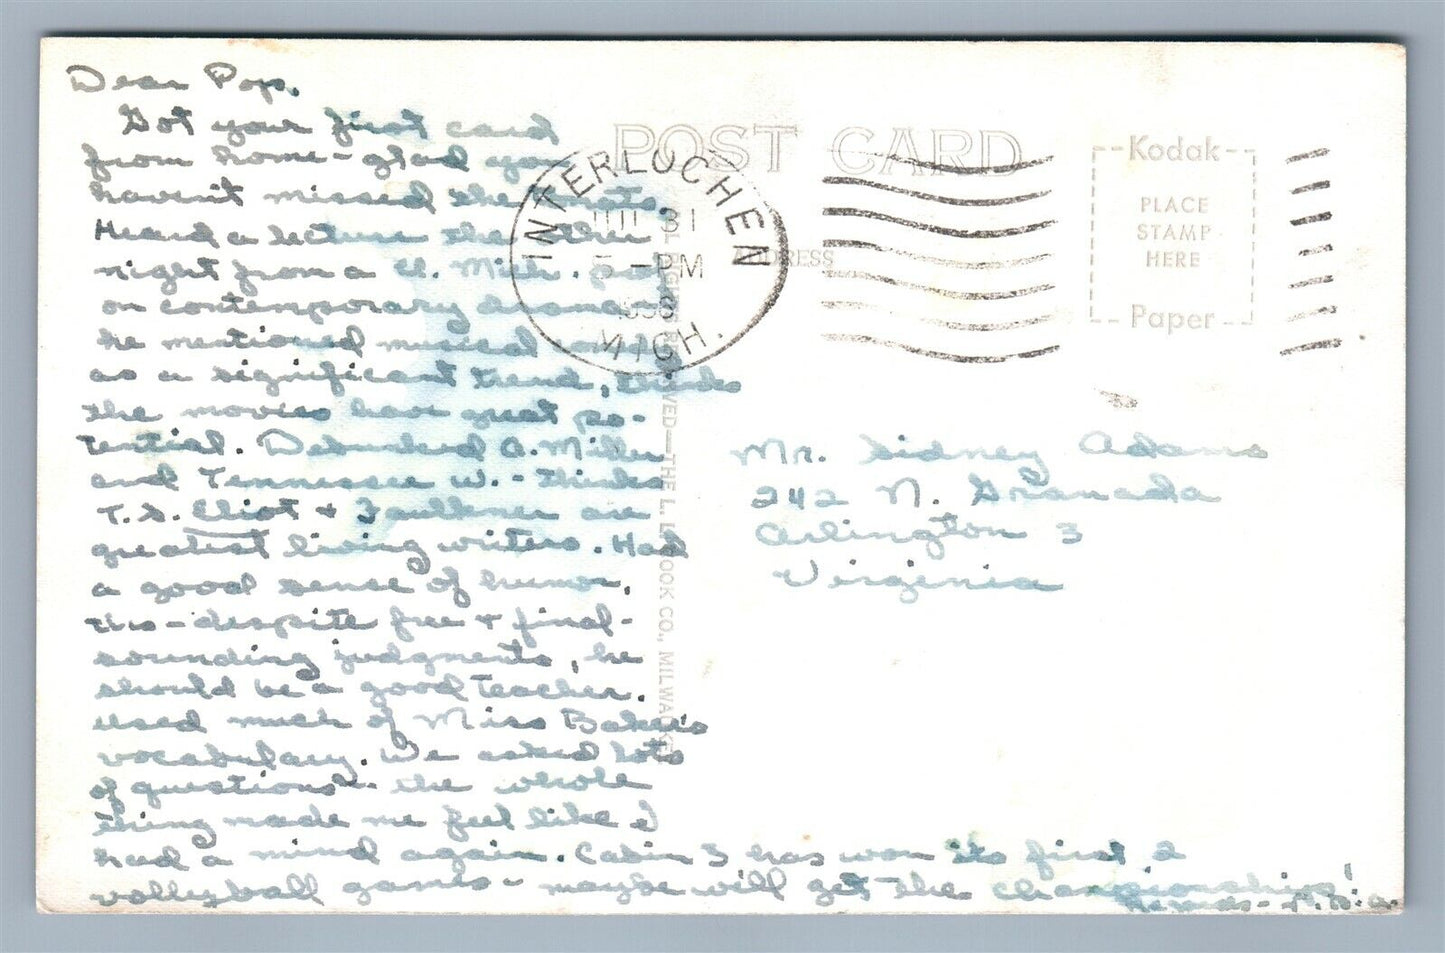 Dear Pops,
Got your first card
from home - glad you
haven't missed the
Heard a lecture the other
night from a U. Mich. prof.
on contemporary drama
he mentioned musical
as a significant trend, thinks
the movies have great po-
tential. Defended A. Miller
and Tennessee W. - thinks
T. S. Eliot & Faulkner are
greatest living writers. Had
a good sense of humor,
too - despite free & final-
sounding judgments, he
should be a good teacher.
used much of Miss Baker's
vocabulary. We asked lots
of questions - the whole
thing made me feel like I
had a mind again. Cabin 3 has won its first 2
volleyball games - maybe will get the championship!
POST CARD
ADDRESS
INTERLOCHEN
31
5 - PM
MICH.
Kodak
PLACE
STAMP
HERE
Paper
Mr. Sidney Adams
242 N. Granada
Arlington 3
Virginia
ALL RIGHTS RESERVED—THE L. L. COOK CO., MILWAUKEE